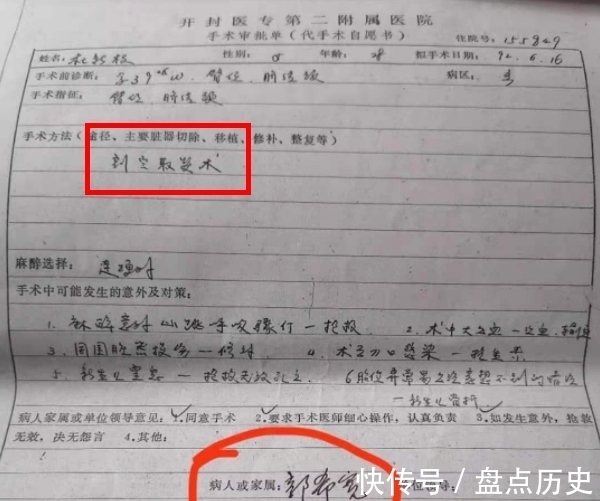 开封医专第二附属医院
手术审批单（代手术自愿书） 住院号：155849
姓名：杜新枝 性别：♀ 年龄：28 拟手术日期：92.6.16
手术前诊断：孕39⁺²W 臀位 病区：
手术指征：臀位
手术方法（途径、主要脏器切除、移植、修补、整复等）
剖宫取婴术
麻醉选择：连硬外
手术中可能发生的意外及对策：
1. 麻醉意外心跳呼吸骤停一抢救 2. 术中大出血一止血、输血
3. 周围脏器损伤一修补 4. 术后刀口感染一抗生素
5. 新生儿窒息一抢救无效死亡 6
病人家属或单位领导意见：1.同意手术 2.要求手术医师细心操作，认真负责 3.如发生意外，抢救
无效，决无怨言 4.其他：
病人或家属：郭希宽 单位领导：
快传号／盘点历史